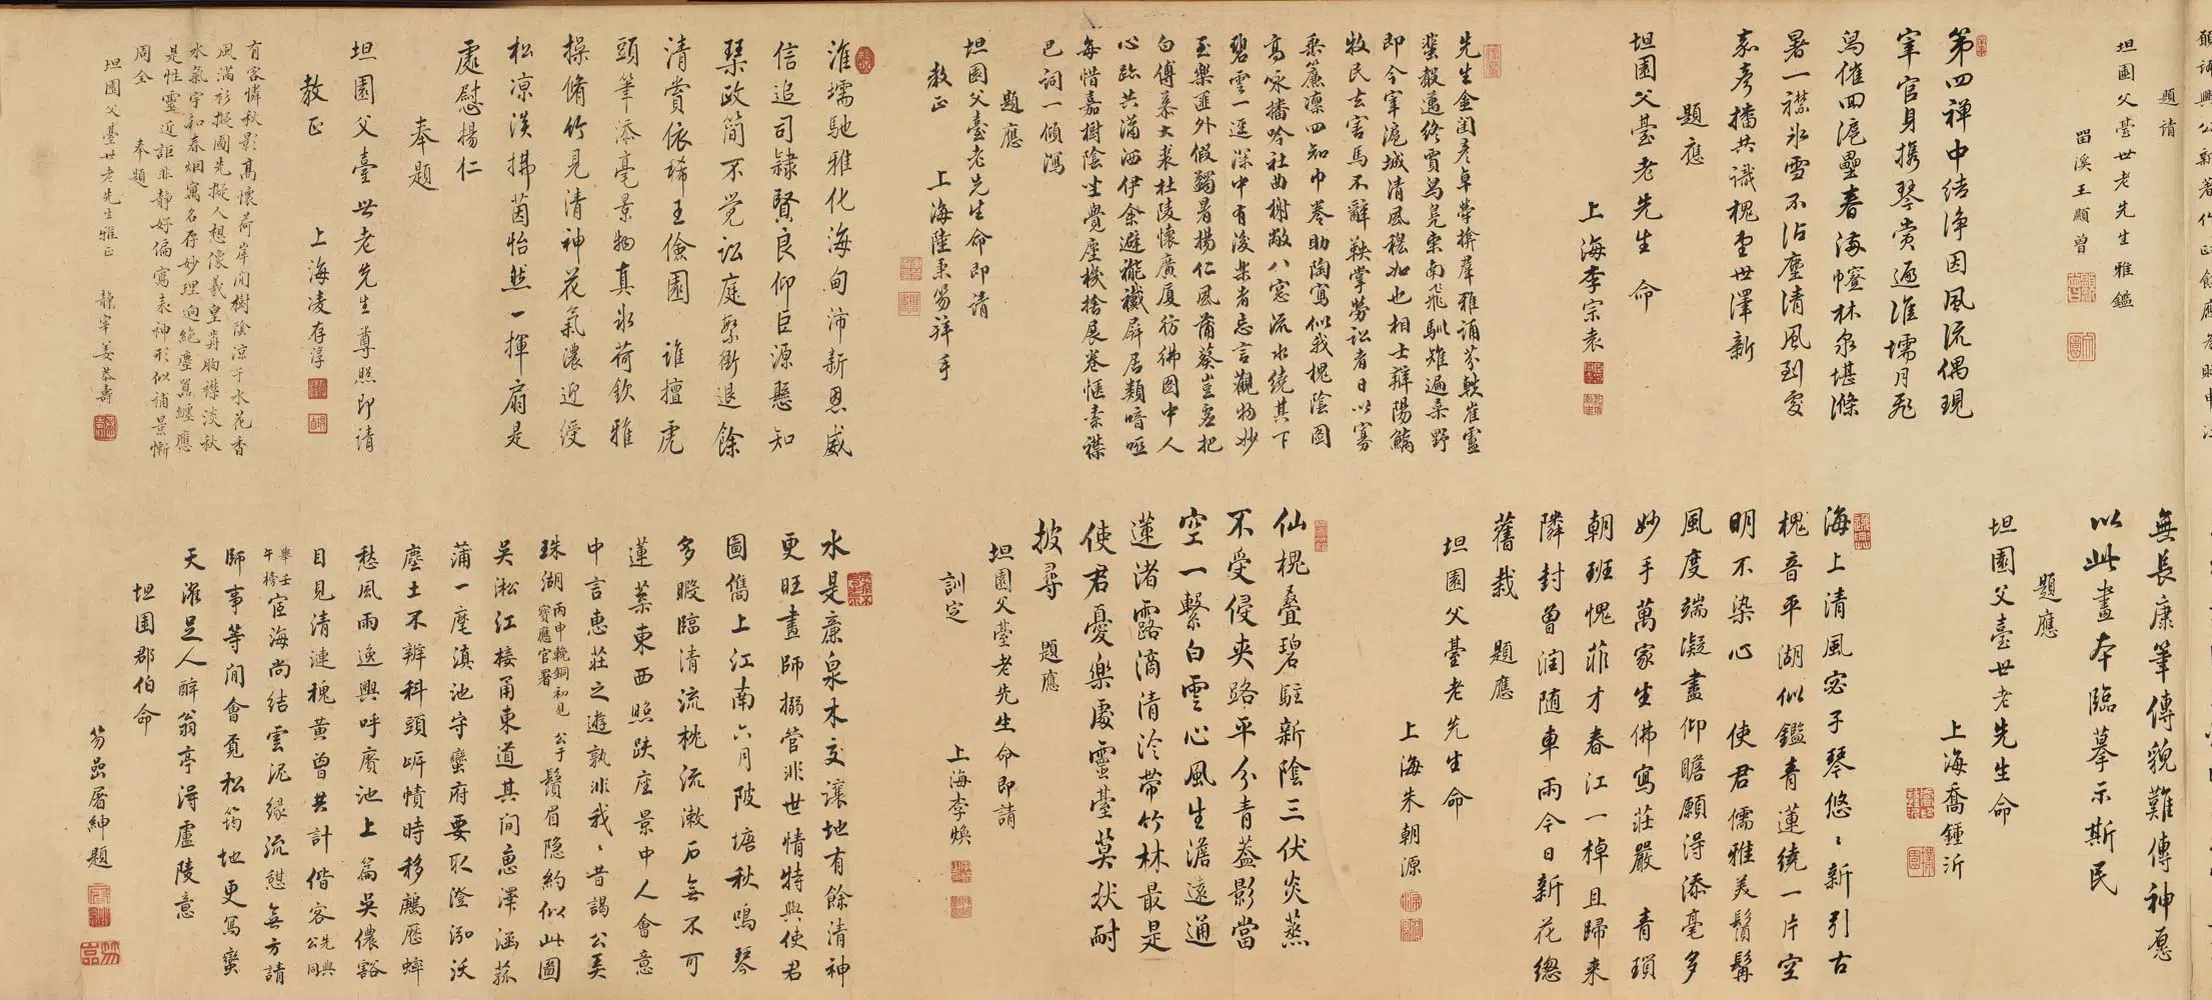 題請
坦園父臺世老先生雅鑑
留溪王顯曾
第四禪中結淨因風流偶現
宰官身携琴賞遍淮壖月飛
舄催回滬壘春濠幰林泉堪滌
暑一襟氷雪不沾塵清風到處
嘉彥播共識槐堂世澤新
題應
坦園父臺老先生 命
上海李宗袁
先生金閨彥卓犖擠羣雅誦芬軼崔靈
蜚聲邁終賈舄凫來南飛馴雉遍桑野
即今宰滬城清風穆如也相士辯陽鱎
牧民去害馬不辭鞅掌勞訟者日以寡
垂簾凛四知巾卷助陶寫似我槐陰圖
高咏播吟社曲榭敞八窓流水繞其下
碧雲一逕深中有淩架者忘言觀物妙
至樂匪外假蠲暑揚仁風蒲葵豈虛把
白傅慕大裘杜陵懷廣厦彷彿圖中人
心跡共瀟洒伊余避褦襶屏居類喑啞
每惜嘉樹陰坐覺塵機捨展卷愜素襟
巴詞一傾瀉
題應
坦園父臺老先生命即請
教正 上海陸秉笏拜手
淮壖馳雅化海甸沛新恩威
信追司隸賢良仰巨源懸知
琴政簡不覺訟庭繁衙退餘
清賞依稀王儉園 誰擅虎
頭筆添毫景物真氷荷欽雅
操脩竹見清神花氣濃迎綬
松凉淡拂茵怡然一揮扇是
處慰揚仁
奉題
坦園父臺世老先生尊照即請
教正 上海凌存淳
有客憐秋影高懷荷岸開樹陰凉于水花香
風滿衫擬圖先擬人想像羲皇肯胸襟淡秋
水氣宇和春烟寓名存妙理迥絶塵囂纏應
是性靈近詎非靜好偏寫表神形似補景慚
周全 奉題
坦園父臺世老先生雅正 靜宰姜恭壽
無長康筆傳貌難傳神愿
以此畫本臨摹示斯民
題應
坦園父臺世老先生命
上海喬鍾沂
海上清風宓子琴悠〻新引古
槐音平湖似鑑青蓮繞一片空
明不染心 使君儒雅美鬚髯
風度端凝盡仰瞻願得添毫多
妙手萬家生佛寫莊嚴 青瑣
朝班愧菲才春江一棹且歸来
隣封曾潤随車雨今日新花總
舊栽 題應
坦園父臺老先生命
上海朱朝源
仙槐叠碧駐新陰三伏炎蒸
不受侵夾路平分青蓋影當
空一繫白雲心風生澹遠通
蓮渚露滴清泠帶竹林最是
使君憂樂處靈臺莫狀耐
披尋 題應
坦園父臺老先生命即請
訓定 上海李煥
水是廉泉木交讓地有餘清神
更旺畫師搦管非世情特與使君
圖儁上江南六月陂塘秋鳴琴
多暇臨清流枕流漱石無不可
蓮葉東西照趺座景中人會意
中言惠莊之遊孰非我〻昔謁公美
珠湖丙申輓銅初見公于寳應官署鬚眉隐約似此圖
吴淞江接甬東道其间惠澤涵菰
蒲一麾滇池守蠻府要取澄泓沃
塵土不辨科頭岸幘時移鷉歷蟀
愁風雨逸興呼賡池上篇吴儂豁
目見清漣槐黃曾共計偕客公先與同
舉壬午榜宦海尚結雲泥緣流憇無方請
師事等间會覔松筠地更寫蠻
天濯足人醉翁亭得廬陵意
坦園郡伯命
笏巗屠紳題